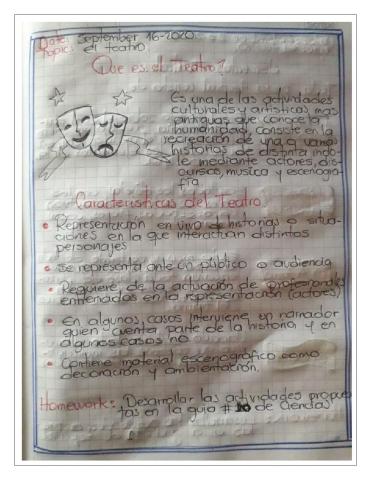 Date: September 16-2020
Topic: el teatro
Que es el Teatro?
Es una de las actividades
culturales y artisticas, mas
antiguas que conoce la
humanidad, consiste en la
recreación de una o varias
historias de distinta indo-
le mediante actores, dis-
cursos, musica y escenogra-
fia
Caracteristicas del Teatro
• Representación en vivo de historias o situa-
ciones en la que interactuan distintos
personajes
• se representa ante un público o audiencia
• Requiere de la actuación de profesionales
entrenados en la representación (actores)
• En algunos, casos interviene un narrador
quien cuenta parte de la historia y en
algunos casos no
• Contiene material escenográfico como
decoración y ambientación.
Homework: Desarrollar las actividades propues
tas en la guia # de Ciencias